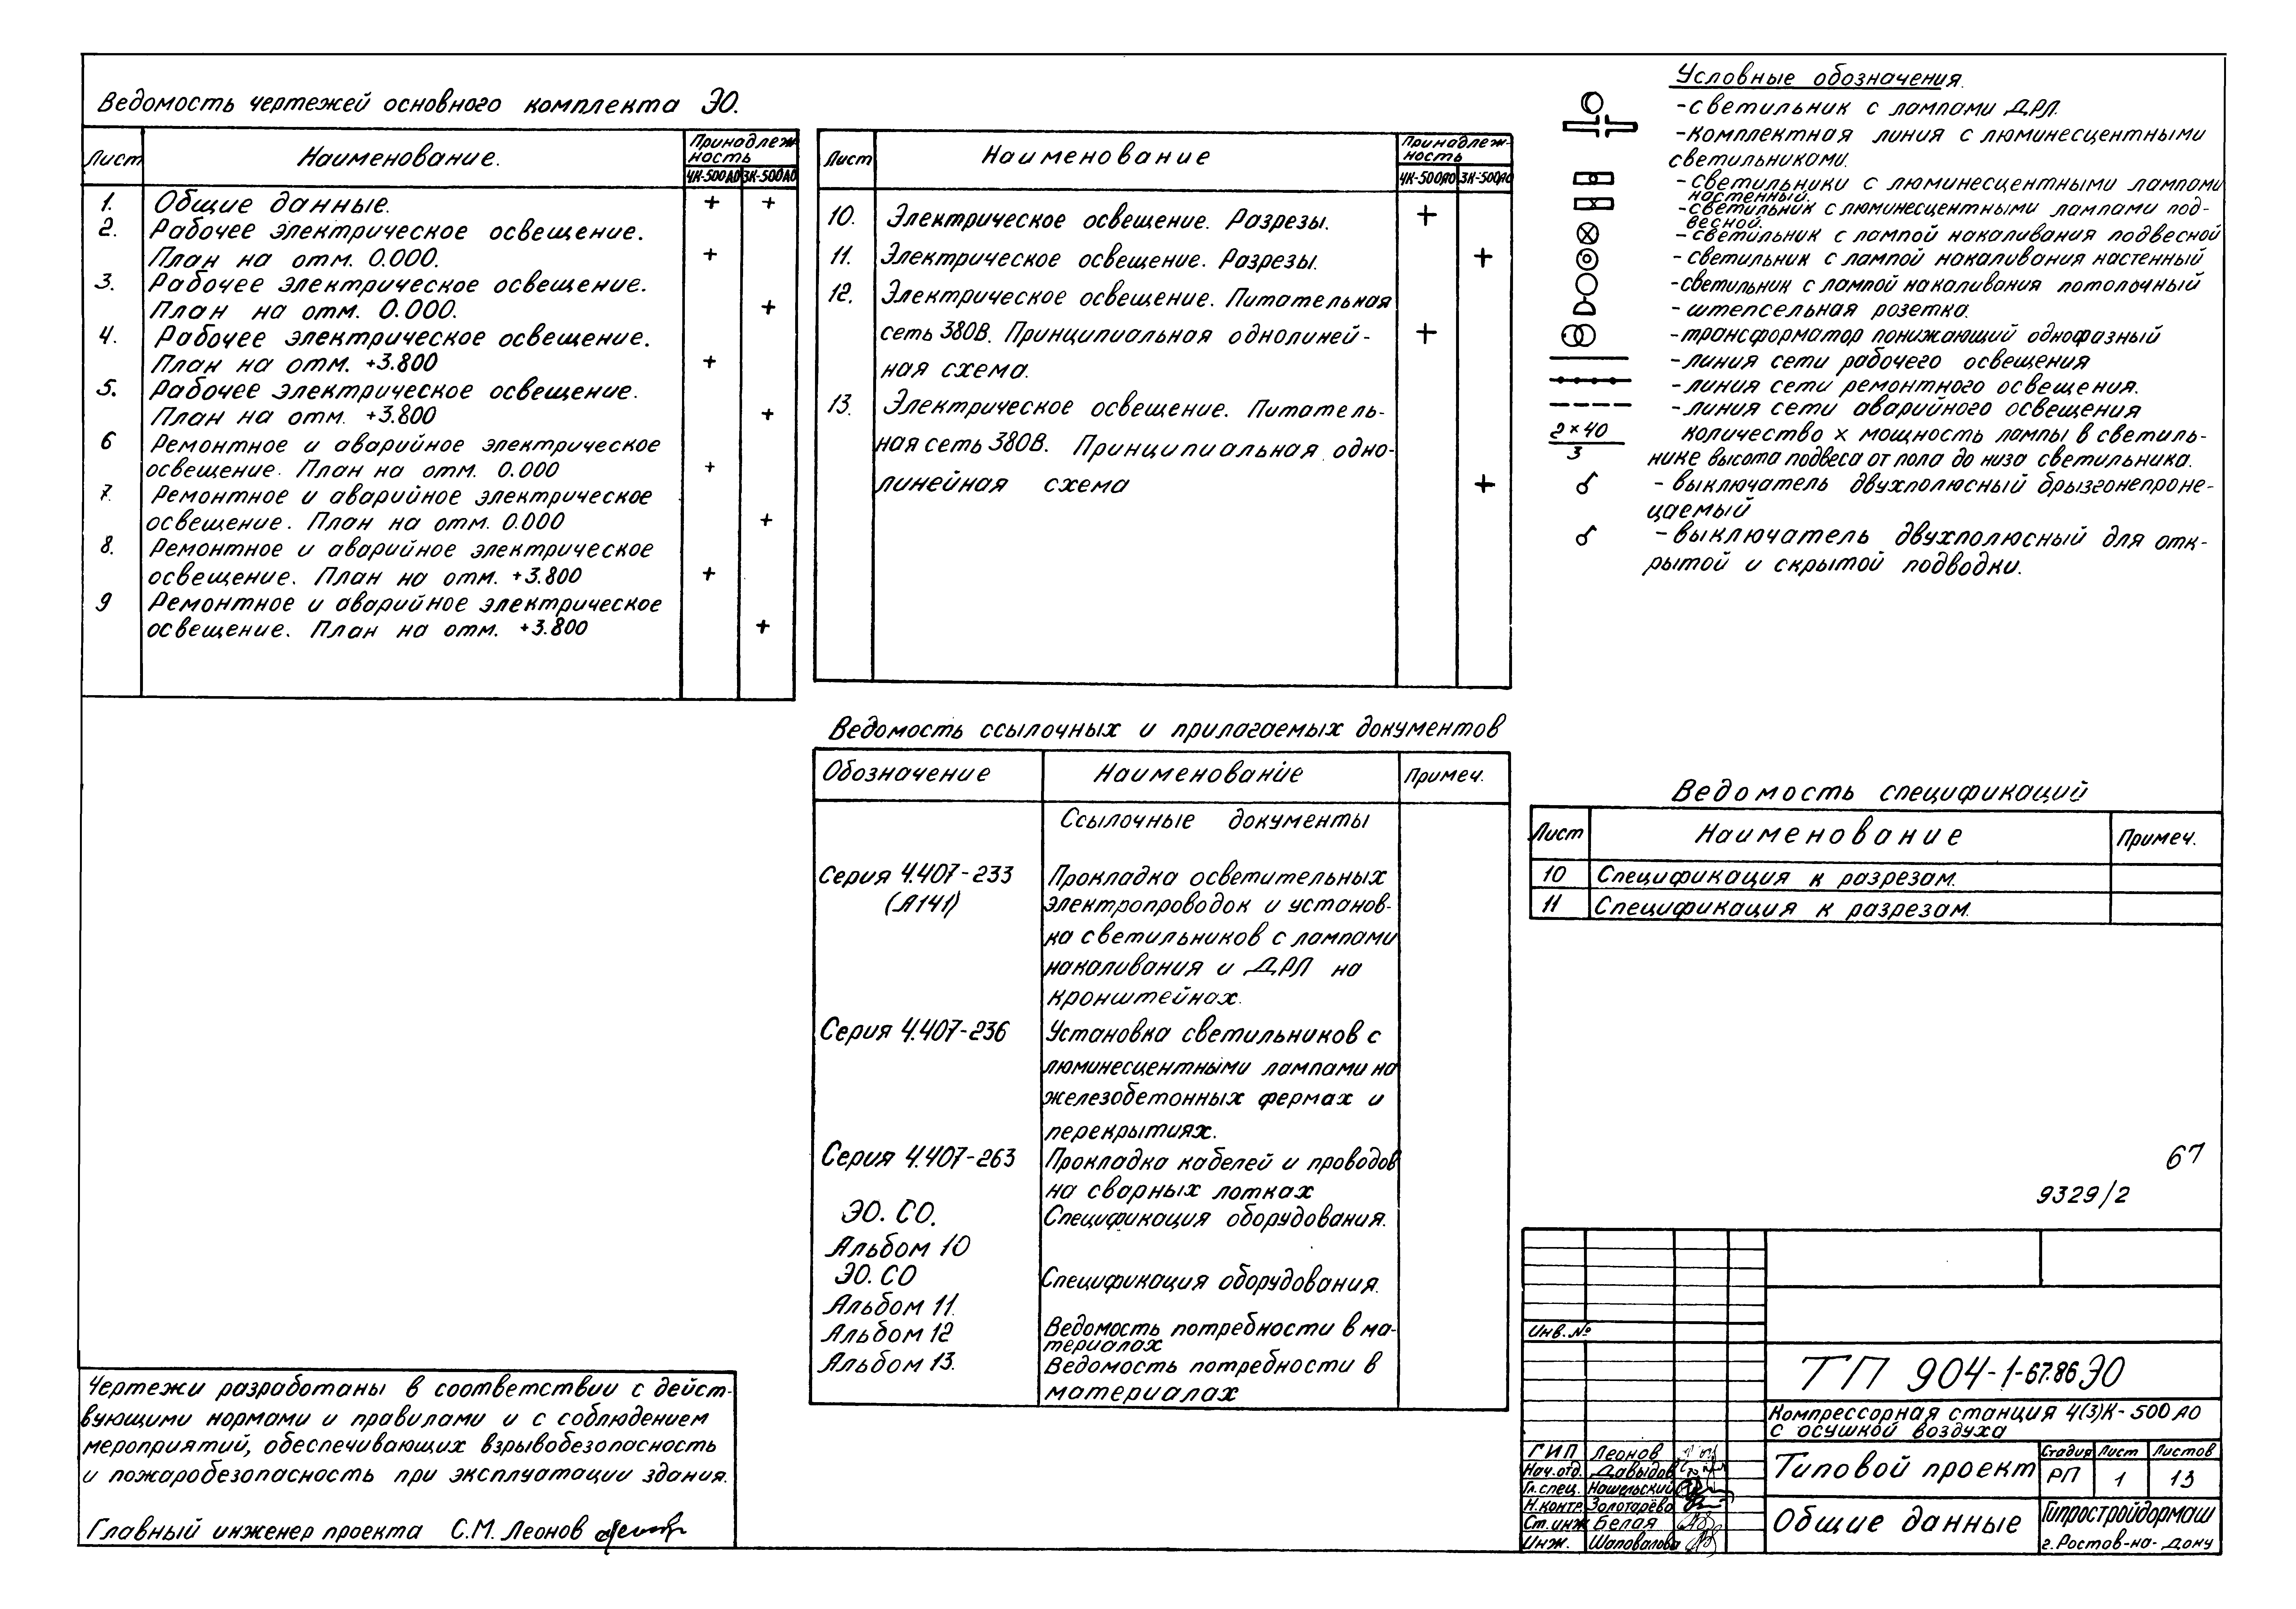 Ведомость чертежей основного комплекта ЭО.
Лист
Наименование.
Принадлеж-
ность
4К-500АО 3К-500АО
1. Общие данные. + +
2. Рабочее электрическое освещение.
План на отм. 0.000. +
3. Рабочее электрическое освещение.
План на отм. 0.000. +
4. Рабочее электрическое освещение.
План на отм. +3.800 +
5. Рабочее электрическое освещение.
План на отм. +3.800 +
6 Ремонтное и аварийное электрическое
освещение. План на отм. 0.000 +
7. Ремонтное и аварийное электрическое
освещение. План на отм. 0.000 +
8. Ремонтное и аварийное электрическое
освещение. План на отм. +3.800 +
9 Ремонтное и аварийное электрическое
освещение. План на отм. +3.800 +
Лист
Наименование
Принадлеж-
ность
4К-500АО 3К-500АО
10. Электрическое освещение. Разрезы. +
11. Электрическое освещение. Разрезы. +
12. Электрическое освещение. Питательная
сеть 380В. Принципиальная однолиней- +
ная схема.
13. Электрическое освещение. Питатель-
ная сеть 380В. Принципиальная одно-
линейная схема +
Условные обозначения.
-светильник с лампами ДРЛ.
-комплектная линия с люминесцентными
светильниками.
-светильники с люминесцентными лампами
настенный.
-светильник с люминесцентными лампами под-
весной.
-светильник с лампой накаливания подвесной
-светильник с лампой накаливания настенный
-светильник с лампой накаливания потолочный
-штепсельная розетка.
-трансформатор понижающий однофазный
-линия сети рабочего освещения
-линия сети ремонтного освещения.
-линия сети аварийного освещения
2×40 количество х мощность лампы в светиль-
3 нике высота подвеса от пола до низа светильника.
-выключатель двухполюсный брызгонепроне-
цаемый
-выключатель двухполюсный для отк-
рытой и скрытой подводки.
Ведомость ссылочных и прилагаемых документов
Обозначение Наименование Примеч.
Ссылочные документы
Серия 4.407-233 Прокладка осветительных
(А141) электропроводок и установ-
ка светильников с лампами
накаливания и ДРЛ на
кронштейнах.
Серия 4.407-236 Установка светильников с
люминесцентными лампами на
железобетонных фермах и
перекрытиях.
Серия 4.407-263 Прокладка кабелей и проводов
на сварных лотках
ЭО. СО. Спецификация оборудования.
Альбом 10
ЭО. СО Спецификация оборудования.
Альбом 11.
Альбом 12 Ведомость потребности в ма-
териалах
Альбом 13. Ведомость потребности в
материалах
Ведомость спецификаций
Лист Наименование Примеч.
10 Спецификация к разрезам.
11 Спецификация к разрезам.
67
9329/2
Чертежи разработаны в соответствии с дейст-
вующими нормами и правилами и с соблюдением
мероприятий, обеспечивающих взрывобезопасность
и пожаробезопасность при эксплуатации здания.
Главный инженер проекта С.М. Леонов
Инв.№
ТП 904-1-67.86 ЭО
Компрессорная станция 4(3)К-500 АО
с осушкой воздуха
ГИП Леонов
Нач.отд. Давыдов
Гл.спец. Нашельский
Н.конте. Золотарёва
Ст.инж Белая
Инж. Шаповалова
Типовой проект
Стадия Лист Листов
РП 1 13
Общие данные
Гипростройдормаш
г.Ростов-на-Дону